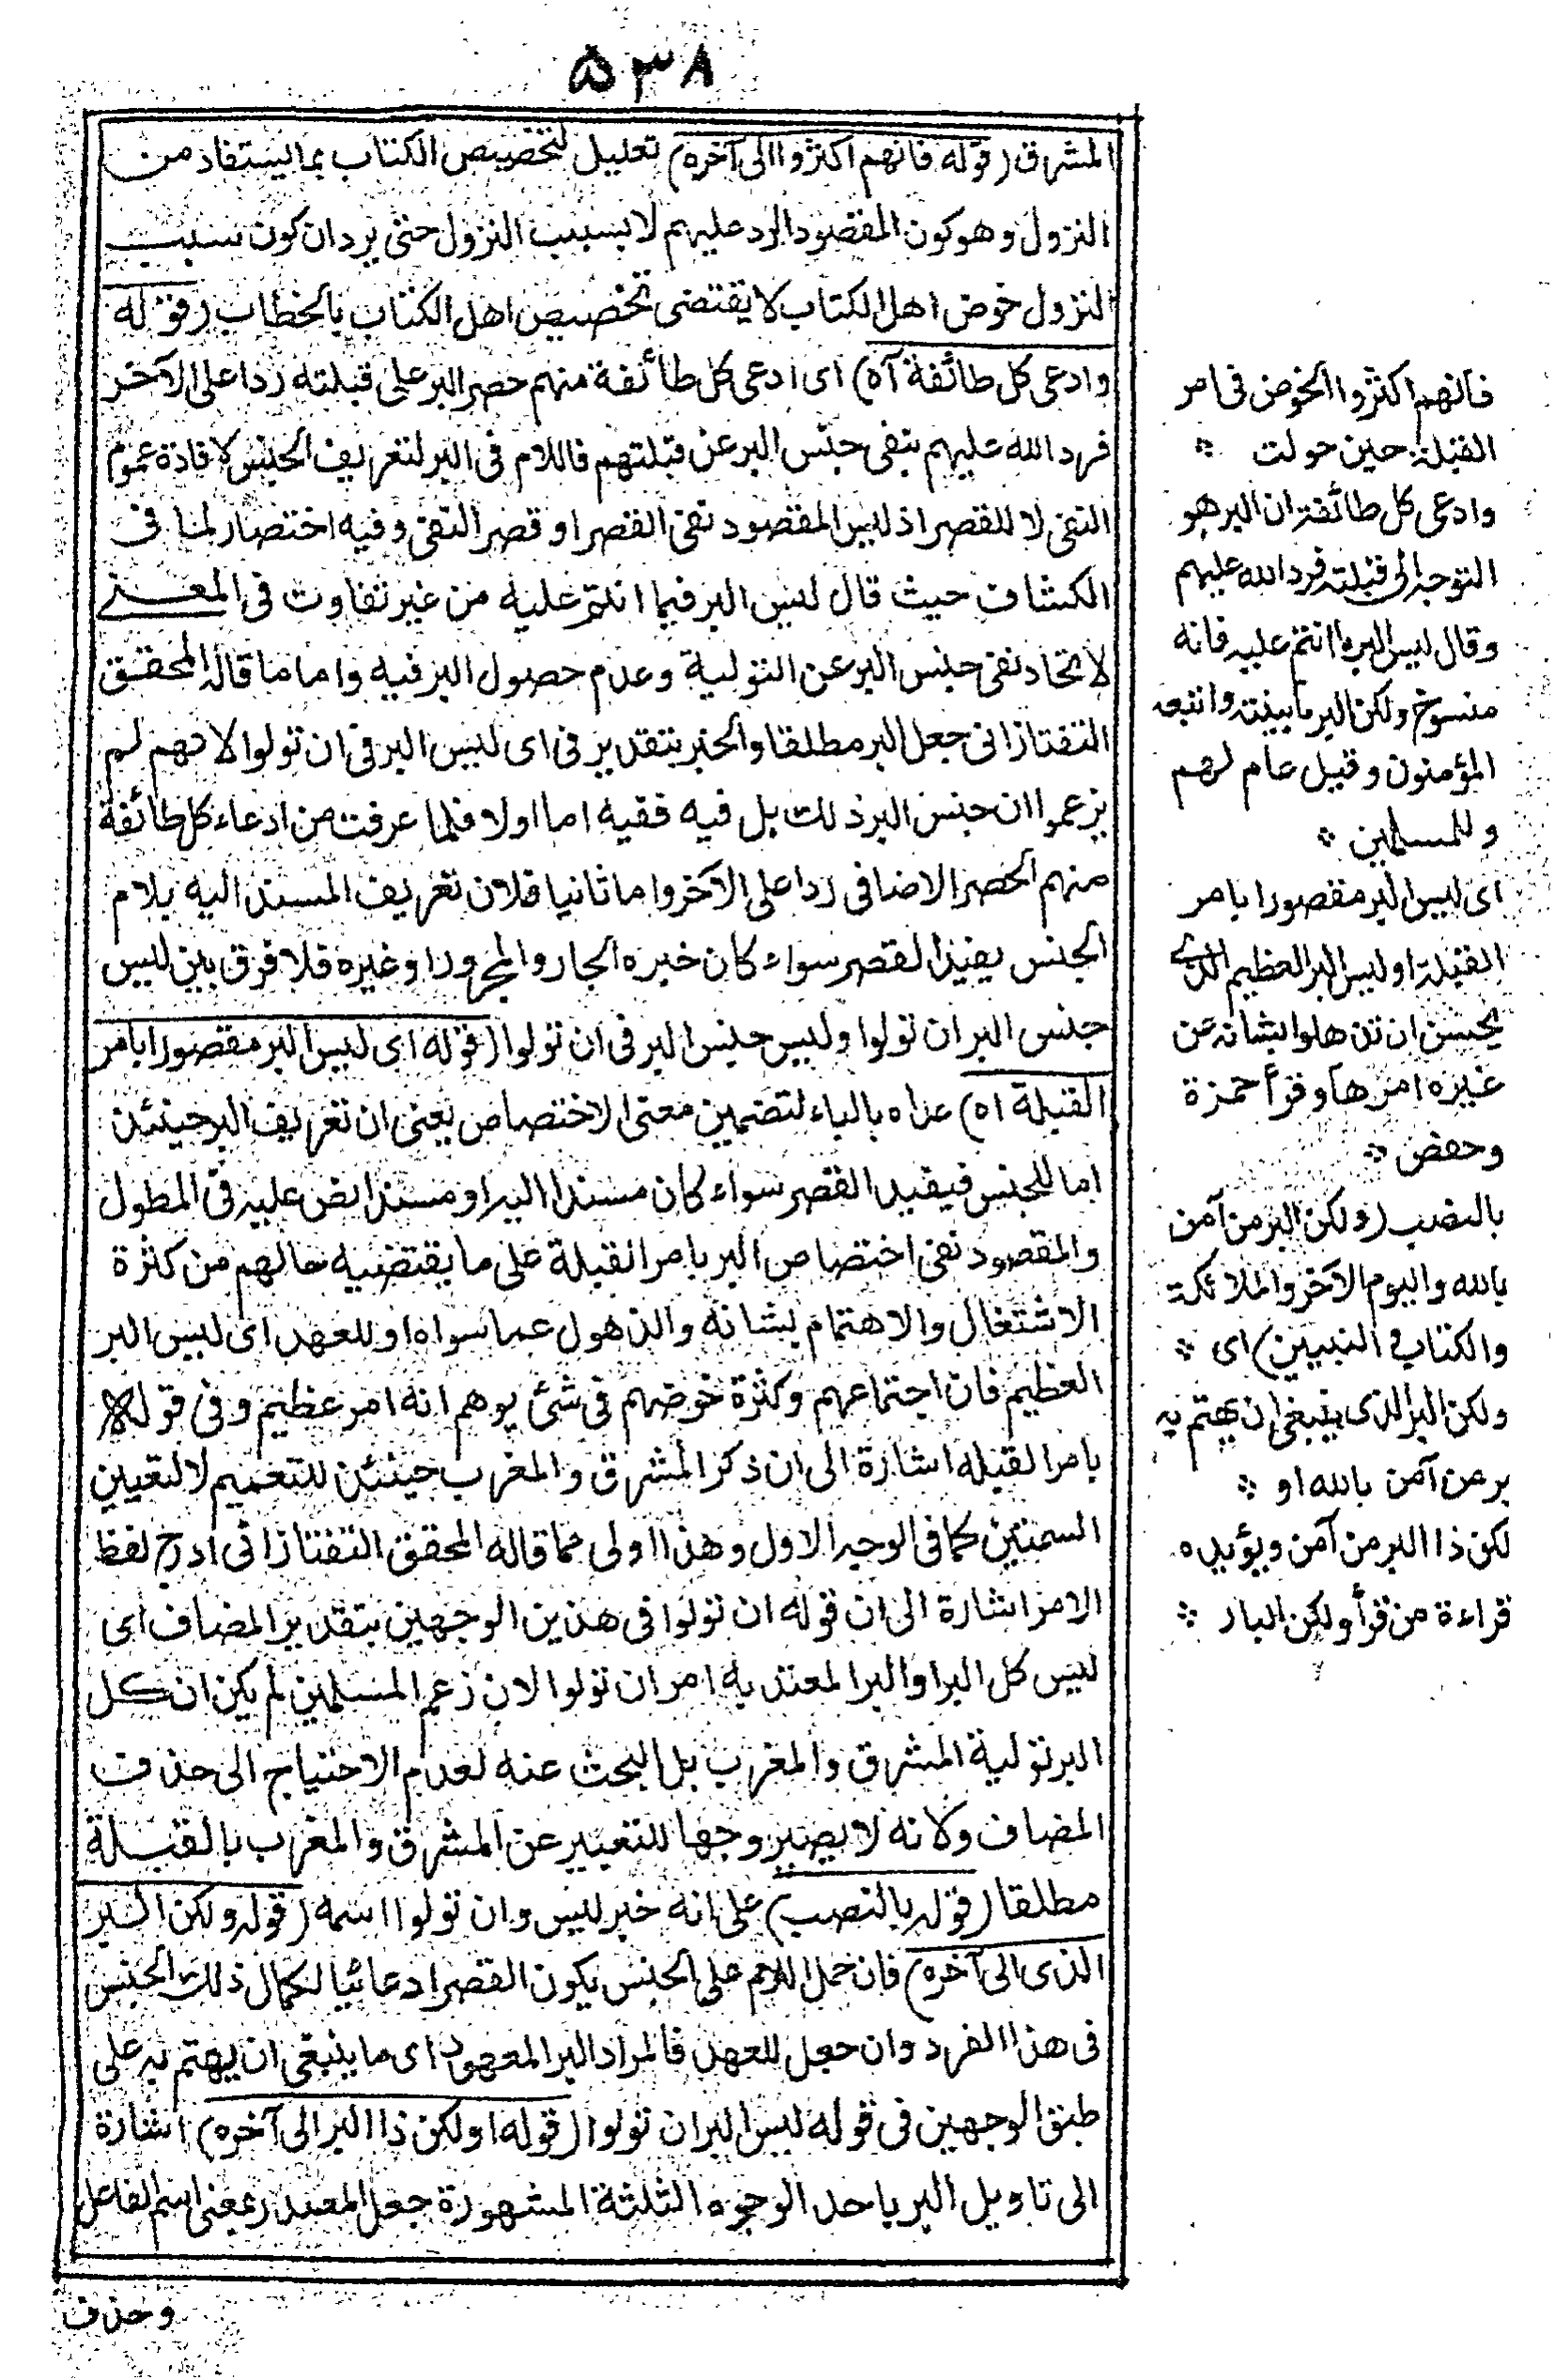 ۵۳۸
المشرق (قوله فانهم اكثروا الى آخره) تعليل لتخصيص الكتاب بما يستفاد من
النزول وهو كون المقصود الرد عليهم لا بسبب النزول حتى يرد ان كون سبب
النزول خوض اهل الكتاب لا يقتضى تخصيص اهل الكتاب بالخطاب (قوله
وادعى كل طائفة آه) اى ادعى كل طائفة منهم حصر البر على قبلته ردا على الآخر
فرد الله عليهم بنفى جنس البر عن قبلتهم فاللام فى البر لتعريف الجنس لافادة عموم
النفى لا للقصر اذ ليس المقصود نفى القصر او قصر النفى وفيه اختصار لما فى
الكشاف حيث قال ليس البر فيما انتم عليه من غير تفاوت فى المعنى
لاتحاد نفى جنس البر عن التولية وعدم حصول البر فيه واما ما قاله المحقق
التفتازانى جعل البر مطلقا والخبر بتقدير فى اى ليس البر فى ان تولوا لانهم لم
يزعموا ان جنس البر ذلك بل فيه ففيه اما اولا فلما عرفت من ادعاء كل طائفة
منهم الحصر الاضافى ردا على الآخر واما ثانيا فلان تعريف المسند اليه بلام
الجنس يفيد القصر سواء كان خبره الجار والمجرور او غيره فلا فرق بين ليس
جنس البر ان تولوا وليس جنس البر فى ان تولوا (قوله اى ليس البر مقصورا بامر
القبلة اه) عداه بالباء لتضمين معنى الاختصاص يعنى ان تعريف البر حينئذ
اما للجنس فيفيد القصر سواء كان مسندا اليه او مسندا نص عليه فى المطول
والمقصود نفى اختصاص البر بامر القبلة على ما يقتضيه حالهم من كثرة
الاشتغال والاهتمام بشانه والذهول عما سواه او للعهد اى ليس البر
العظيم فان اجتماعهم وكثرة خوضهم فى شئ يوهم انه امر عظيم وفى قوله
بامر القبله اشارة الى ان ذكر المشرق والمغرب حينئذ للتعميم لا لتعيين
السمتين كما فى الوجه الاول وهذا اولى مما قاله المحقق التفتازانى ادرج لفظ
الامر اشارة الى ان قوله ان تولوا فى هذين الوجهين بتقدير المضاف اى
ليس كل البر او البر المعتد به امر ان تولوا لان زعم المسلمين لم يكن ان كل
البر تولية المشرق والمغرب بل البحث عنه لعدم الاحتياج الى حذف
المضاف ولانه لا يصير وجها للتعبير عن المشرق والمغرب بالقبلة
مطلقا (قوله بالنصب) على انه خبر ليس وان تولوا اسمه (قوله ولكن البر
الذى الى آخره) فان حمل اللام على الجنس يكون القصر ادعائيا لكمال ذلك الجنس
فى هذا الفرد وان جعل للعهد فالمراد البر المعهود اى ما ينبغى ان يهتم به على
طبق الوجهين فى قوله ليس البر ان تولوا (قوله او لكن ذا البر الى آخره) اشارة
الى تاويل البر باحد الوجوه الثلثة المشهورة جعل المصدر بمعنى اسم الفاعل
وحذف
فانهم اكثروا الخوض فى امر
القبلة حين حولت
وادعى كل طائفة ان البر هو
التوجه الى قبلته فرد الله عليهم
وقال ليس البر ما انتم عليه فانه
منسوخ ولكن البر ما بينته واتبعه
المؤمنون وقيل عام لهم
وللمسلمين
اى ليس البر مقصورا بامر
القبلة او ليس البر العظيم الذى
يحسن ان تذهلوا بشانه عن
غيره امرها وقرأ حمزة
وحفص
بالنصب (ولكن البر من آمن
بالله واليوم الآخر والملائكة
والكتاب والنبيين) اى
ولكن البر الذى ينبغى ان يهتم به
بر من آمن بالله او
لكن ذا البر من آمن ويؤيده
قراءة من قرأ ولكن البار